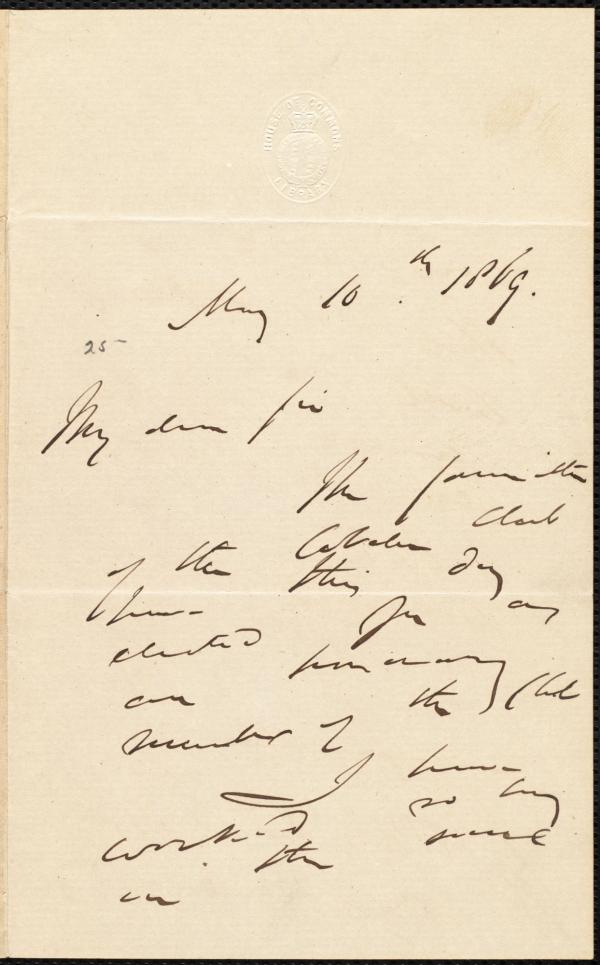 HOUSE OF COMMONS
LIBRARY
May 10th 1869.
25-
My dear Sir
The Committee
of the Cobden Club
have this day
elected you as
an honorary
member of the Club
I have
worked so long
in the same